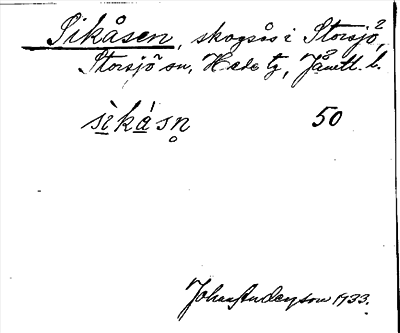 Sikåsen, skogsås i Storsjö,
Storsjö sn, Hede tg, Jämtl. l.
sìkásn̥ 50
Johan Anderson 1933.